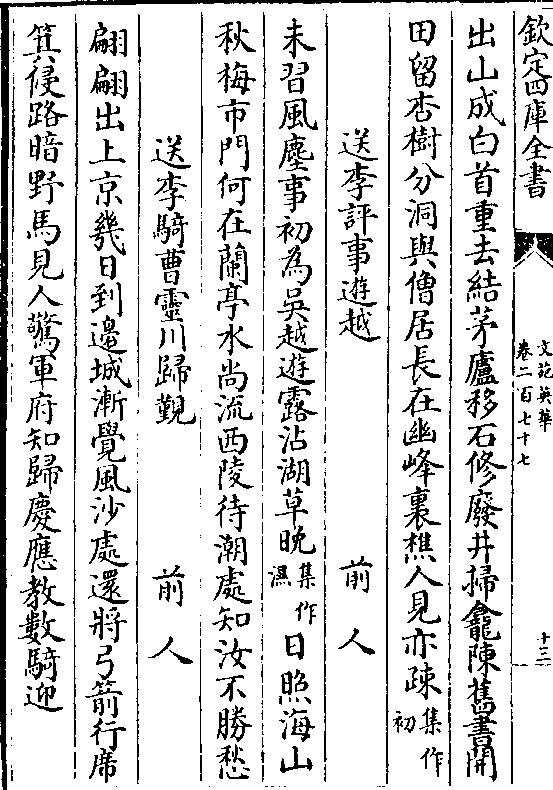 欽定四庫全書
文苑英華
卷二百七十七
十三
出山成白首重去結茅廬移石修廢井掃龕陳舊書開
田留杏樹分洞與僧居長在幽峰裏樵人見亦疎集作初
送李評事遊越 前人
未習風塵事初為吳越遊露沾湖草晚集作濕日照海山
秋梅市門何在蘭亭水尚流西陵待潮處知汝不勝愁
送李騎曹靈川歸覲 前人
翩翩出上京幾日到邊城漸覺風沙處還將弓箭行席
箕侵路暗野馬見人驚軍府知歸慶應教數騎迎